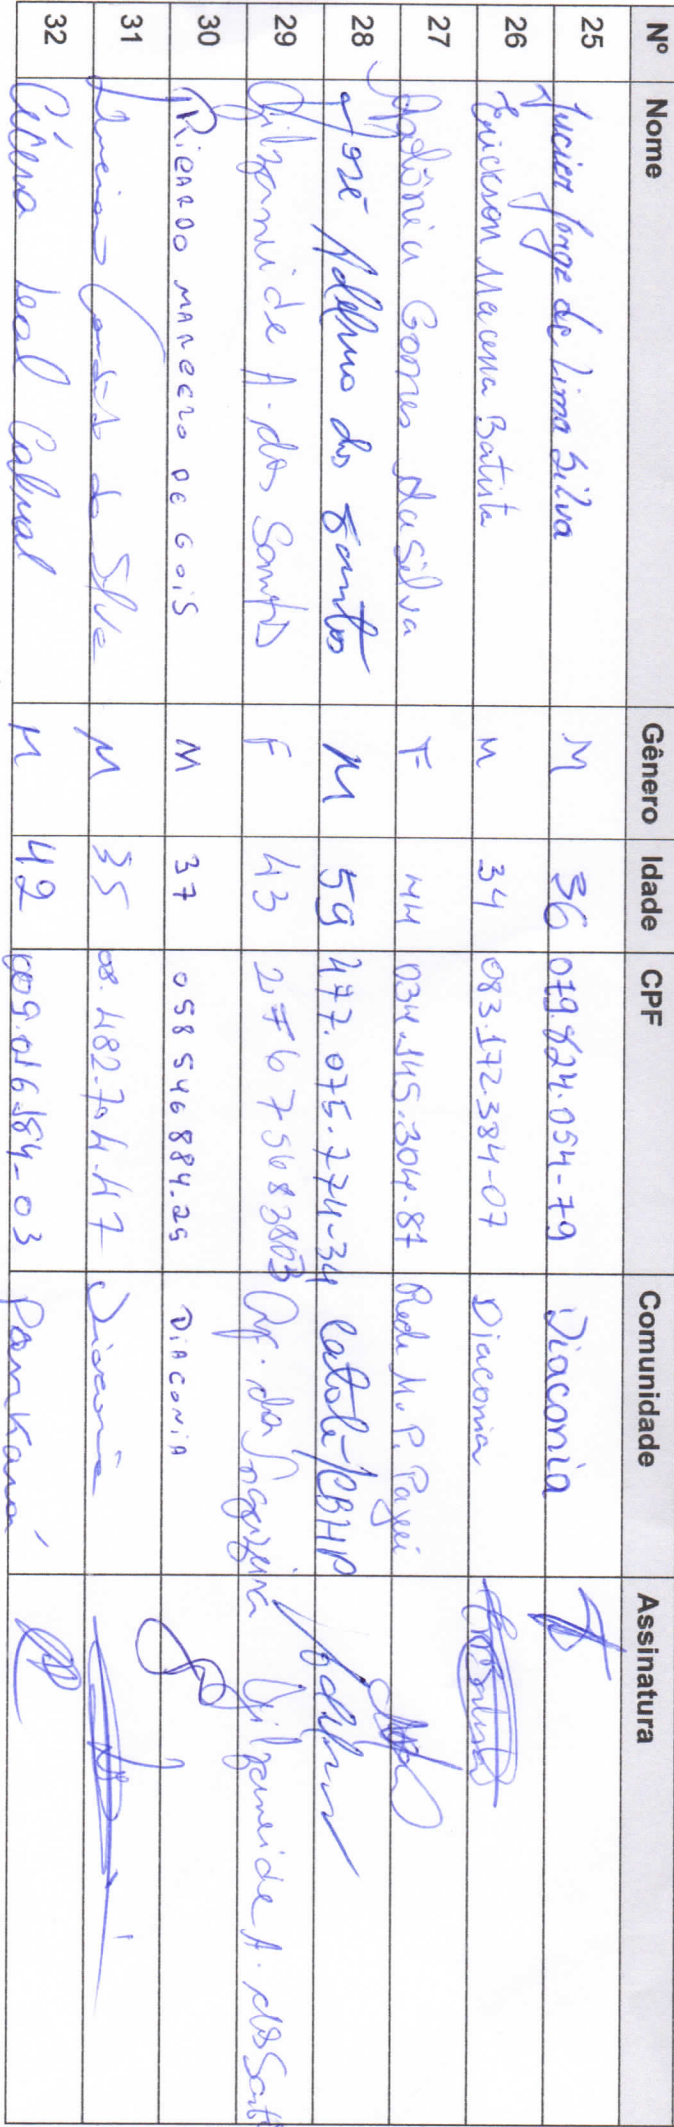 Nº Nome Gênero Idade CPF Comunidade Assinatura
25 Jucier Jorge de Lima Silva M 36 079.824.054-79 Diaconia
26 Erickson Macena Batista M 34 083.172.384-07 Diaconia
27 Apolônia Gomes da Silva F 44 034.145.304-87 Rede M. P. Pajeú
28 José Adelmo dos Santos M 59 477.075.774-34 Catolé/CBHP Adelmo
29 Gilzaneide A. dos Santos F 43 27675683803 da Ingazeira Gilzaneide A. dos Sant
30 RICARDO DE GOIS M 37 058546884.25 DIACONIA
31 da Silva M 35 Diaconia
32 Leal Cabral M 42 Pankará